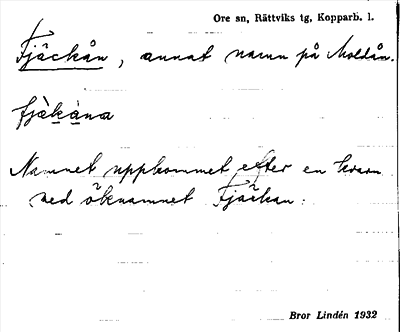 Ore sn, Rättviks tg, Kopparb. l.
Fjäckån, annat namn på Moldån.
fjäkàna
Namnet uppkommet efter en kvarn
med öknamnet Fjäckan.
Bror Lindén 1932